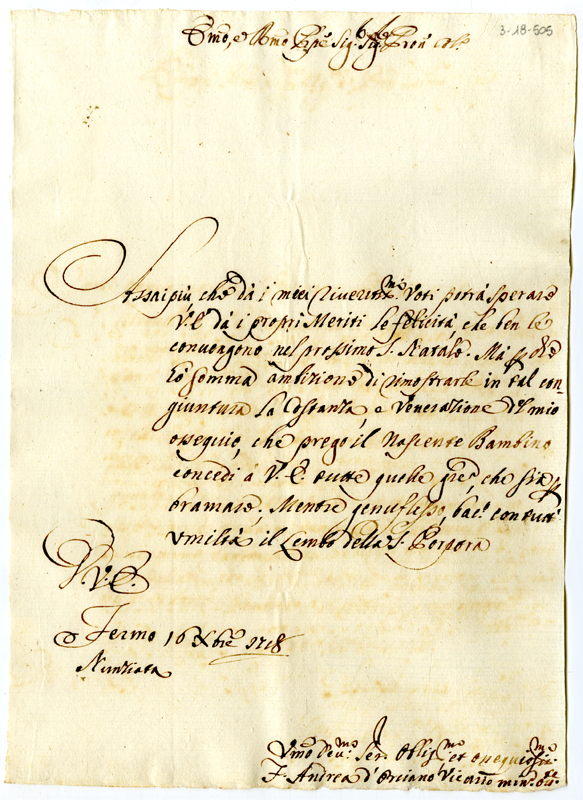 3-18-505
Em̃o, e Rm̃o Pr̃pe Sig. Sig. Pron Col.
Assai più, che dà i miei riverent.mi Voti potrà sperare
V.E. dà i propri Meriti le felicità, che ben le
convengono nel prossimo S. Natale. Mà
hò somma ambizione di rimostrarle in tal con-
giuntura la Costanza, e Venerazione del mio
ossequio, che prego il Nascente Bambino
concedi à V.E. tutte quelle gr̃e, che sà
bramare. Mentre genuflesso, bac.º con tutta
umiltà il Lembo della S. Porpora
D. V. E.
Fermo 16 Xbre 1718
Nunziata
Vmo Deu.mo Ser. Oblig.mo et ossequiosis.mo
F. Andrea d'Orciano Vicario